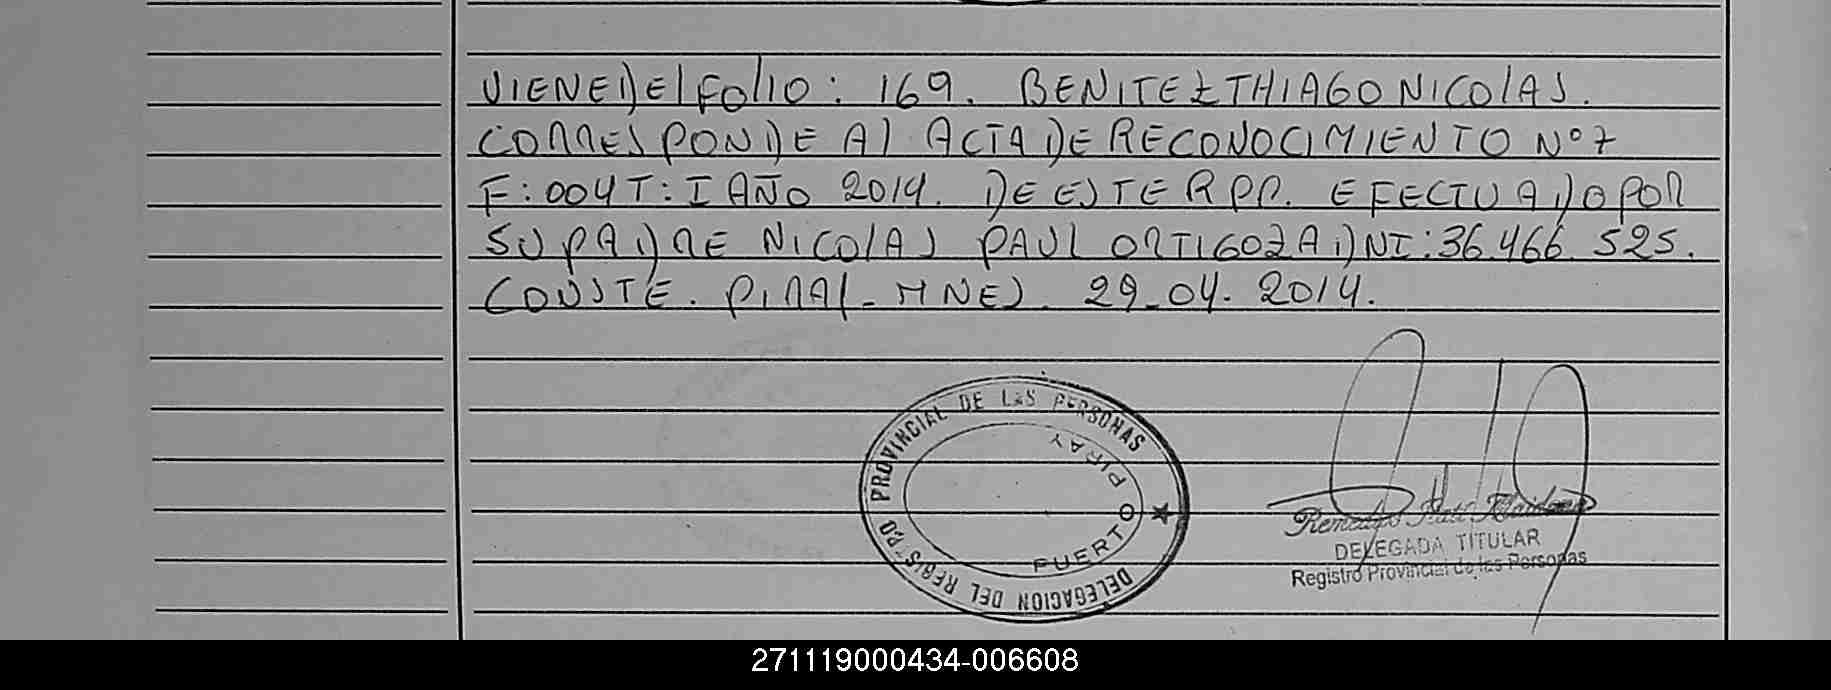 VIENE DEL FOLIO: 169. BENITEZ THIAGO NICOLAS.
CORRESPONDE Al ACTA DE RECONOCIMIENTO Nº 7
F: 004 T: I AÑO 2014. DE ESTE R.P.P. EFECTUADO POR
SU PADRE NICOLAS PAUL ORTIGOZA DNI: 36.466.525.
CONSTE. PIRAY - MNES. 29-04-2014.
DELEGACION DEL REGISTRO PROVINCIAL DE LAS PERSONAS
PUERTO PIRAY
DELEGADA TITULAR
Registro Provincial de las Personas
271119000434-006608